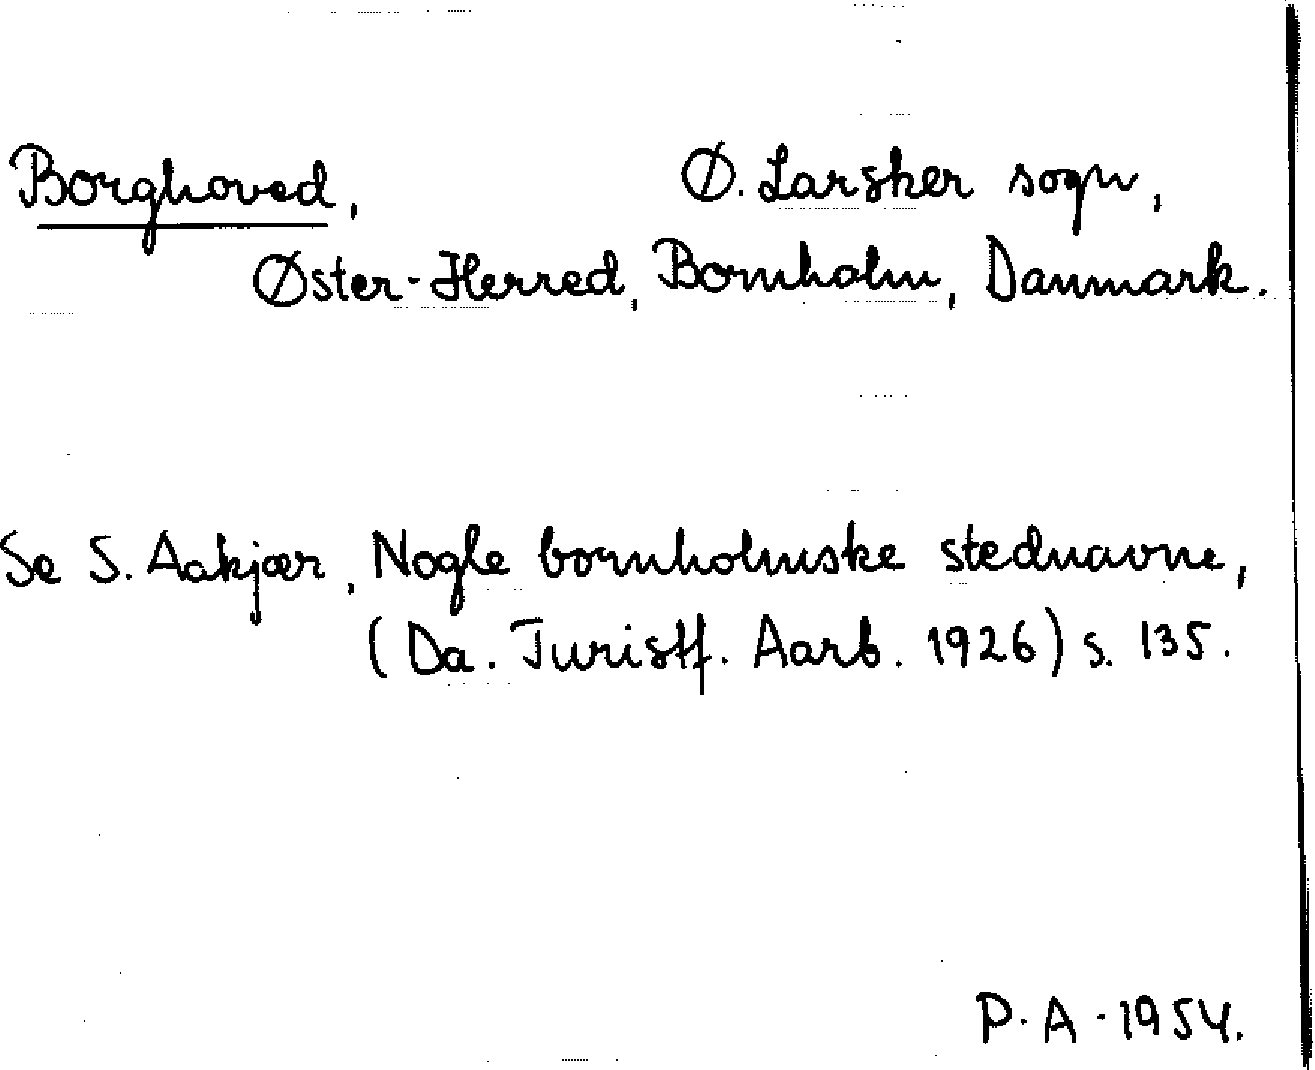 Borghoved, Ø. Larsker sogn,
Øster-Herred, Bornholm, Danmark.
Se S. Aakjær, Nogle bornholmske stednavne,
(Da. Turistf. Aarb. 1926) s. 135.
P. A. 1954.